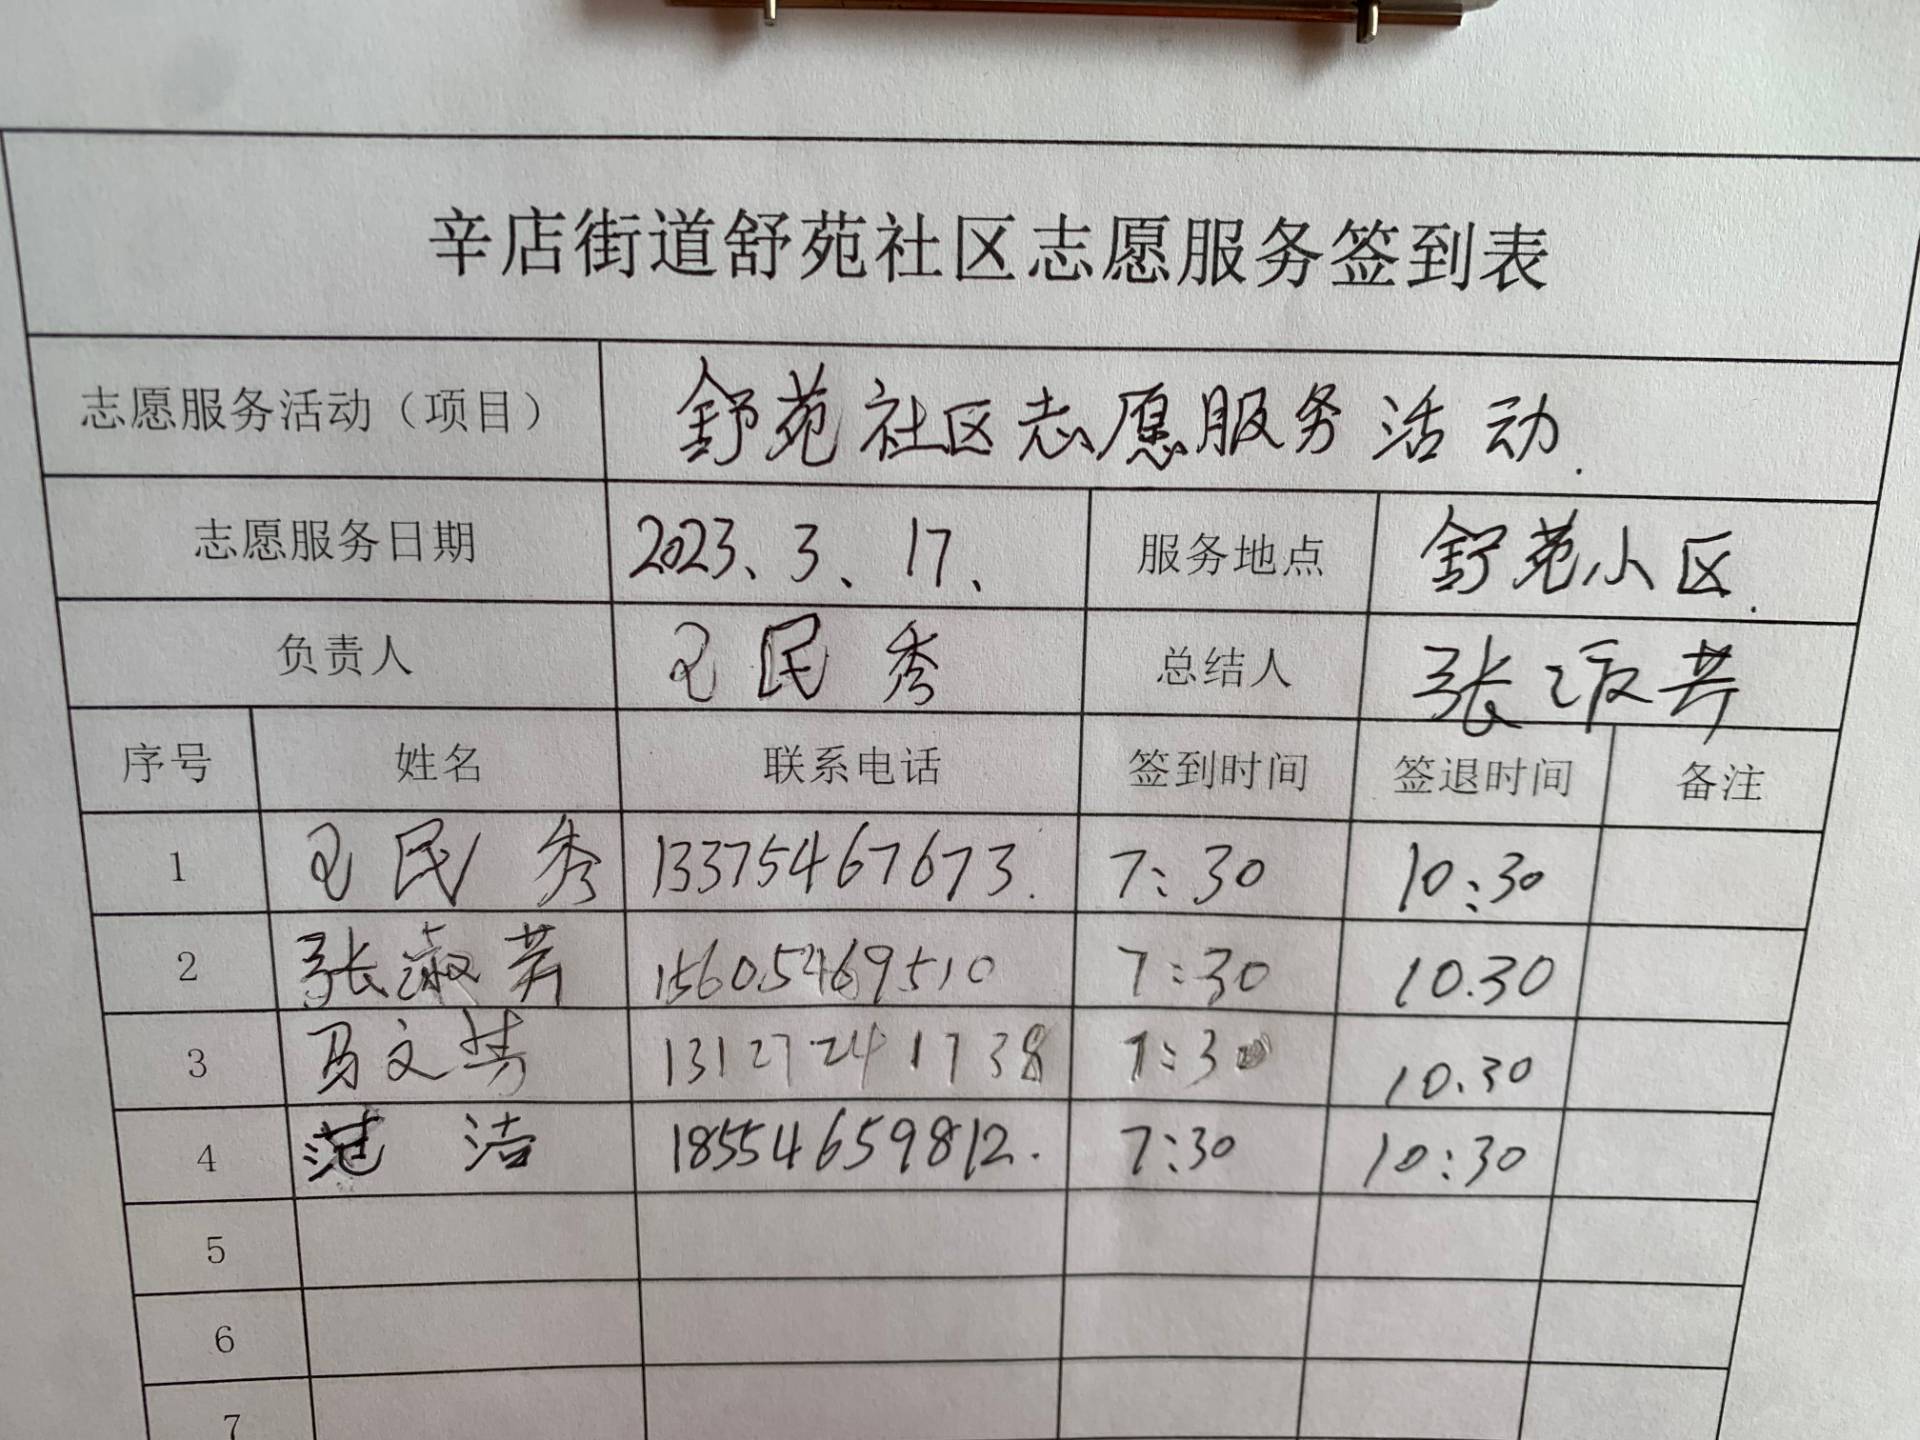 辛店街道舒苑社区志愿服务签到表
志愿服务活动（项目） 舒苑社区志愿服务活动.
志愿服务日期 2023、3、17、 服务地点 舒苑小区.
负责人 王民秀 总结人 张淑芳
序号 姓名 联系电话 签到时间 签退时间 备注
1 王民秀 13375467673. 7:30 10:30
2 张淑芳 15605469510 7:30 10.30
3 马文琴 13127241738 7:30 10.30
4 范洁 18554659812. 7:30 10:30
5
6
7